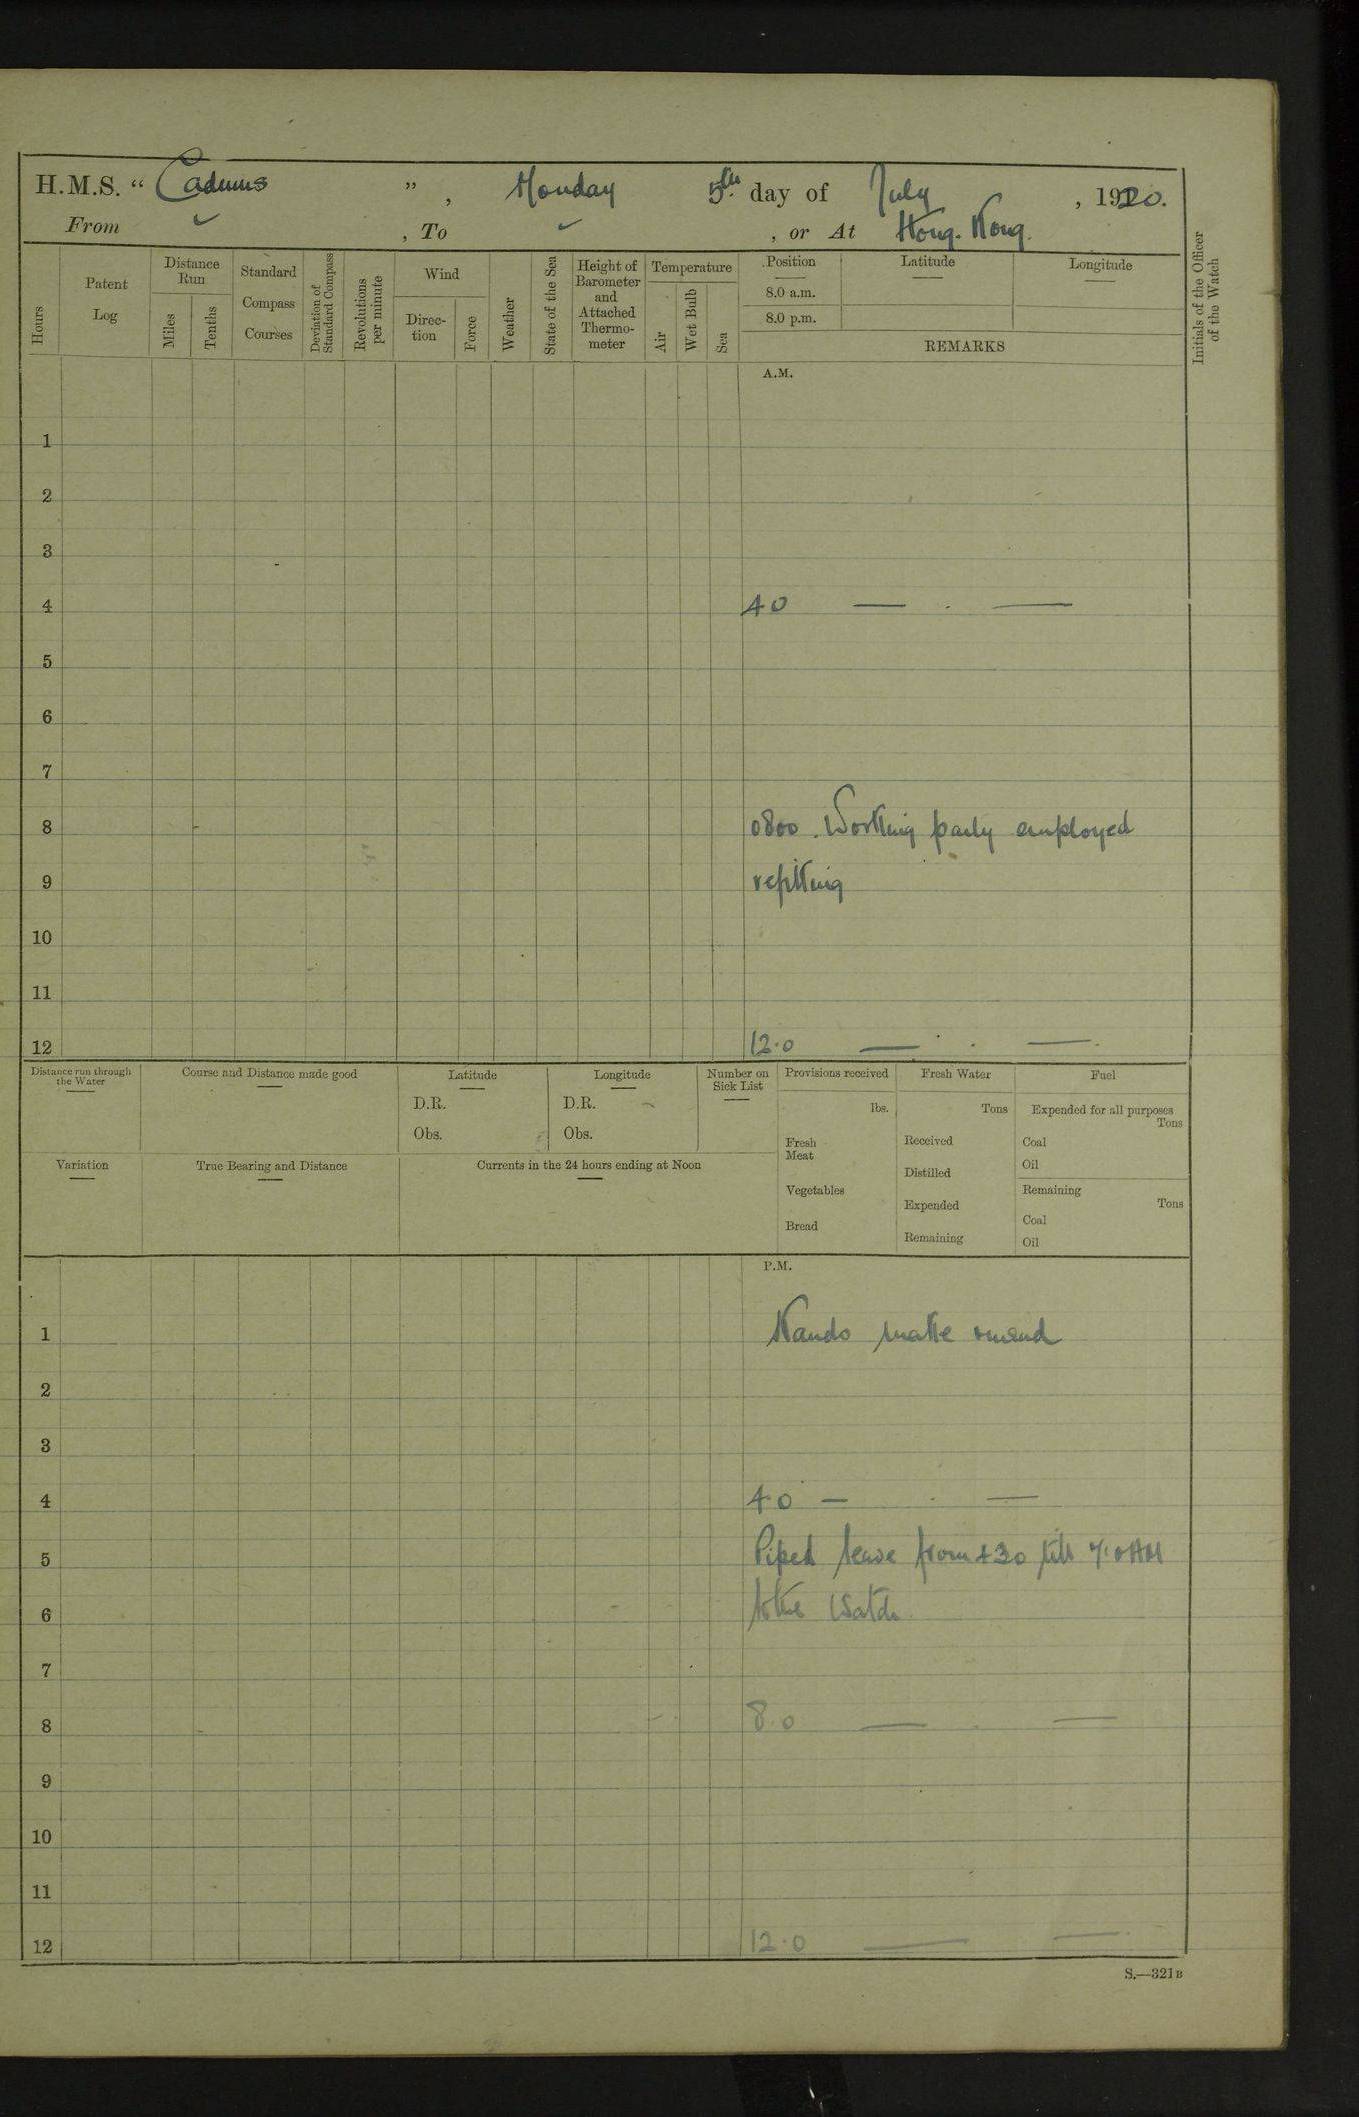 H.M.S. “ Cadmus ” , Monday 5th day of July , 1920.
From ✓ , To ✓ , or At Hong. Kong.
Hours
Patent Log
Distance Run
Miles
Tenths
Standard Compass Courses
Deviation of Standard Compass
Revolutions per minute
Wind
Direc-tion
Force
Weather
State of the Sea
Height of Barometer and Attached Thermo-meter
Temperature
Air
Wet Bulb
Sea
Position
8.0 a.m.
8.0 p.m.
Latitude
Longitude
REMARKS
Initials of the Officer of the Watch
A.M.
1
2
3
4 4 0 — . —
5
6
7
8 0800 . Working party employed
9 refitting
10
11
12 12.0 — . —
Distance run through the Water
Course and Distance made good
Latitude
D.R.
Obs.
Longitude
D.R.
Obs.
Number on Sick List
Provisions received
lbs.
Fresh Meat
Vegetables
Bread
Fresh Water
Tons
Received
Distilled
Expended
Remaining
Fuel
Expended for all purposes
Tons
Coal
Oil
Remaining
Tons
Coal
Oil
Variation
True Bearing and Distance
Currents in the 24 hours ending at Noon
P.M.
1 Hands make & mend
2
3
4 4.0 — . —
5 Piped leave from 4 30 till 7.0 AM
6 to the Watch
7
8 8.0 — . —
9
10
11
12 12.0 — —
S.—321B